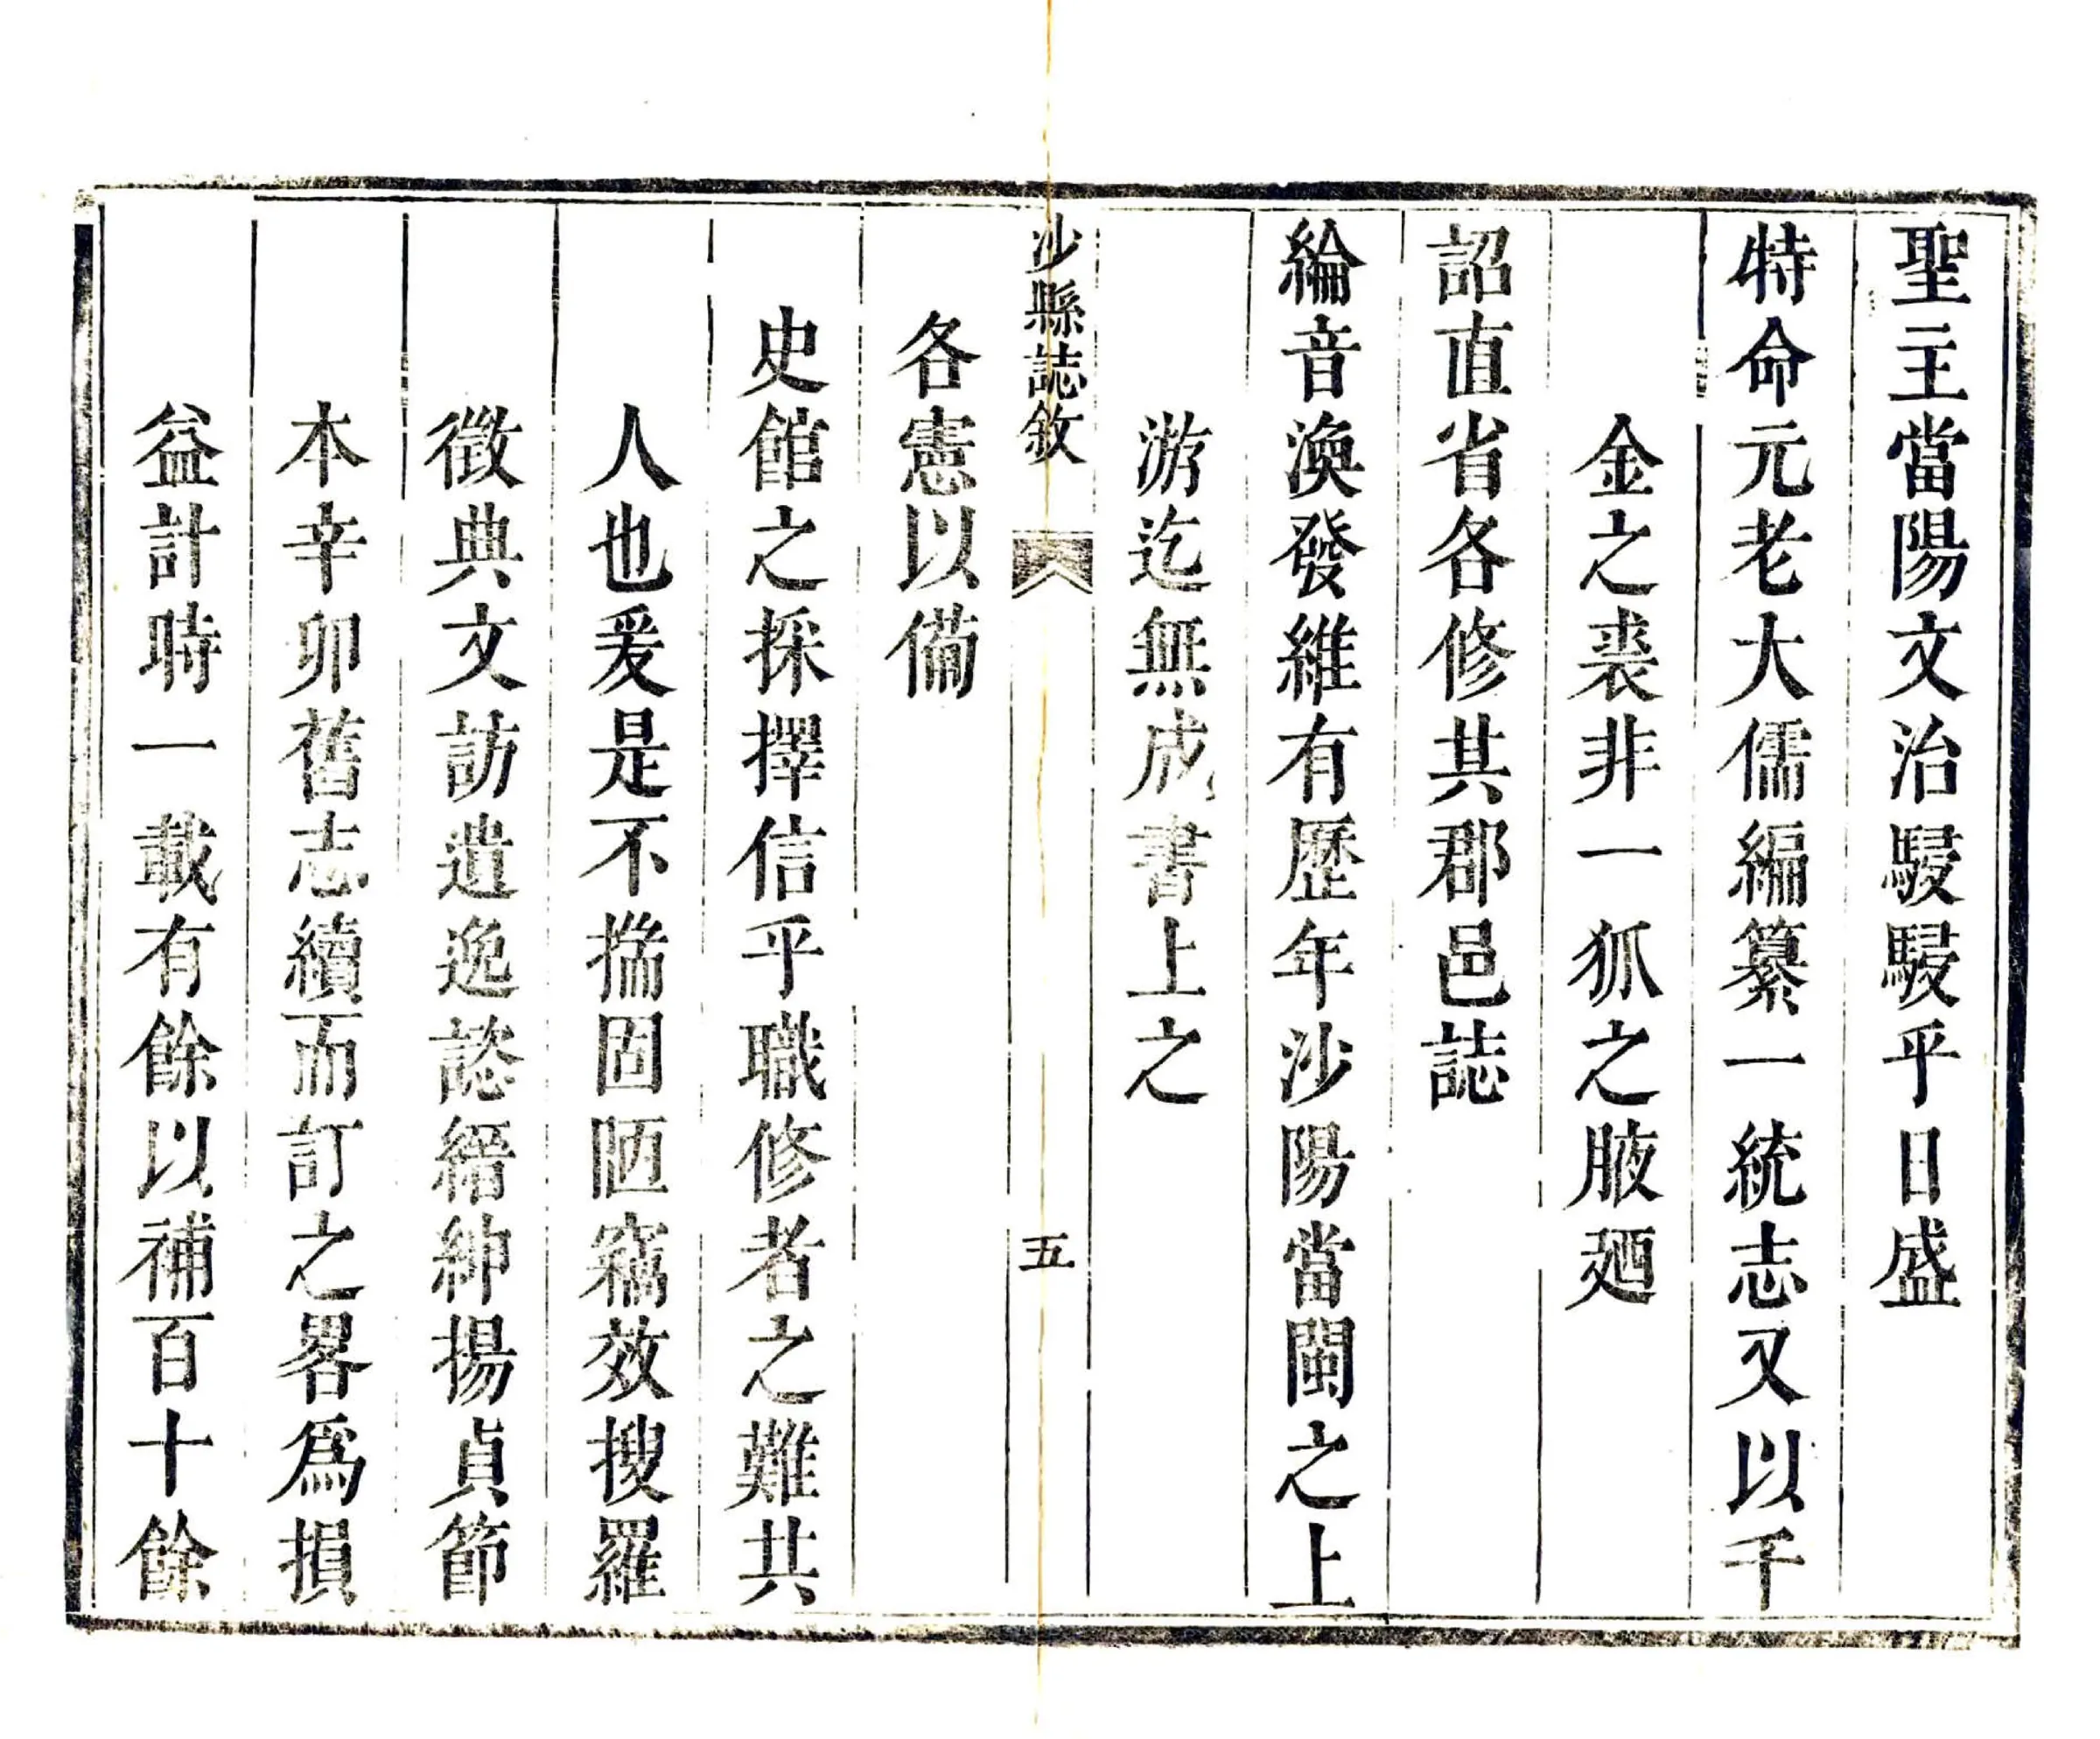 聖主當陽文治駸駸乎日盛
特命元老大儒編纂一統志又以千
金之裘非一狐之腋廼
詔直省各修其郡邑誌
綸音渙發維有歷年沙陽當閩之上
游迄無成書上之
沙縣誌敘
五
各憲以俻
史舘之採擇信乎職修者之難共
人也爰是不揣固陋竊效搜羅
徵典文訪遺逸諮縉紳揚貞節
本辛卯舊志續而訂之畧爲損
益計時一載有餘以補百十餘